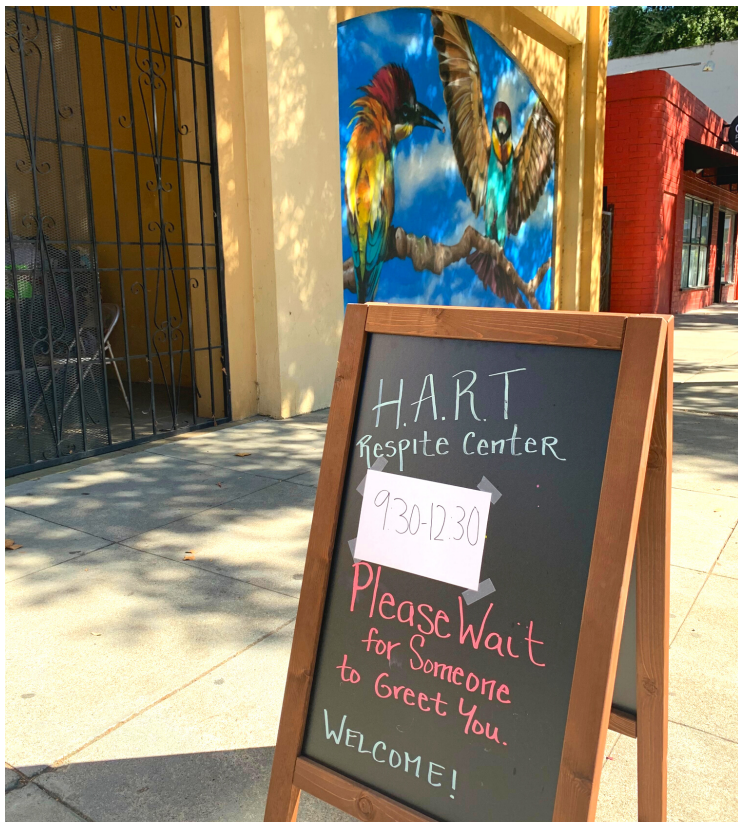 H.A.R.T
Respite Center
930-12:30
Please Wait
for Someone
to Greet You.
WELCOME!